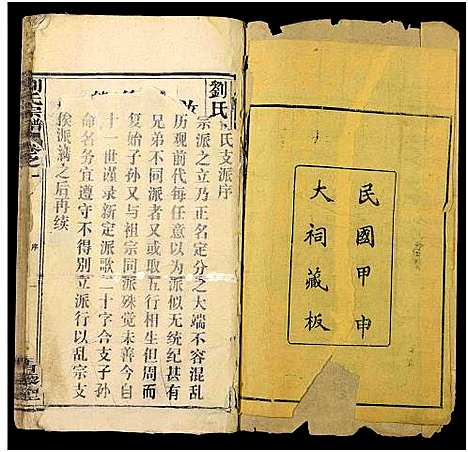 民國甲申
大祠藏板
劉氏
氏支派序
宗派之立乃正名定分之大端不容混乱
历观前代每任意以为派似无统纪甚有
兄弟不同派者又或取五行相生但周而
复始子孙又与祖宗同派殊觉未善今自
十一世谨录新定派歌二十字合支子孙
命名务宜遵守不得别立派行以乱宗支
俟派满之后再续
劉氏宗譜
序
一